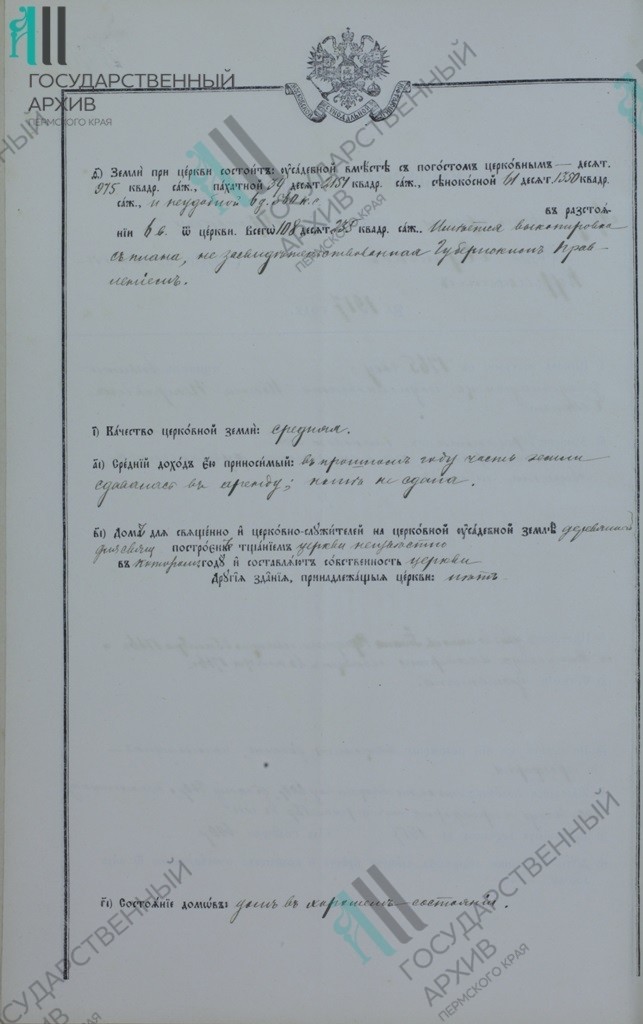 ГОСУДАРСТВЕННЫЙ
АРХИВ
ПЕРМСКОГО КРАЯ
ѳ҃) Землѝ при це́ркви состои́тъ: ᲂу҆са́дебной вмѣ́стѣ съ пого́стомъ церко́внымъ — десят.
975 квадр. са́ж., па́хатной 39 десят. 2151 квадр. са́ж., сѣноко́сной 61 десят. 1350 квадр.
са́ж., и неудобной 6 д. 560 к. с.
въ разстоя́-
нїи 6 в. ѿ це́ркви. Всегѡ̀ 108 десят. 235 квадр. са́ж., Имѣется выкопировка
съ плана, не засвидѣтельствованная Губернскимъ Прав-
леніемъ.
і҃) Ка́чество церко́вной землѝ: средняя.
а҃і) Сре́днїй дохо́дъ є҆́ю приноси́мый: въ прошломъ году часть земли
сдавалась въ аренду; ный не сдана.
в҃і) Домы̀ для свяще́нно и҆ церко́вно-служи́телей на церко́вной ᲂу҆са́дебной землѣ̀ деревянный
для свящ. постро́єны тща́нїемъ церкви неизвѣстно
въ которомъ году̀ и҆ составля́ютъ со́бственность церкви
Дрꙋгі́я зда̑нїя, принадлежа́щыя це́ркви: нѣтъ.
г҃і) Состоѧ́нїе домѡ́въ: домъ въ хорошемъ состояніи.
ГОСУДАРСТВЕННЫЙ
АРХИВ
ПЕРМСКОГО КРАЯ
ГОСУДАРСТВЕННЫЙ
АРХИВ
ПЕРМСКОГО КРАЯ
ГОСУДАРСТВЕННЫЙ
АРХИВ